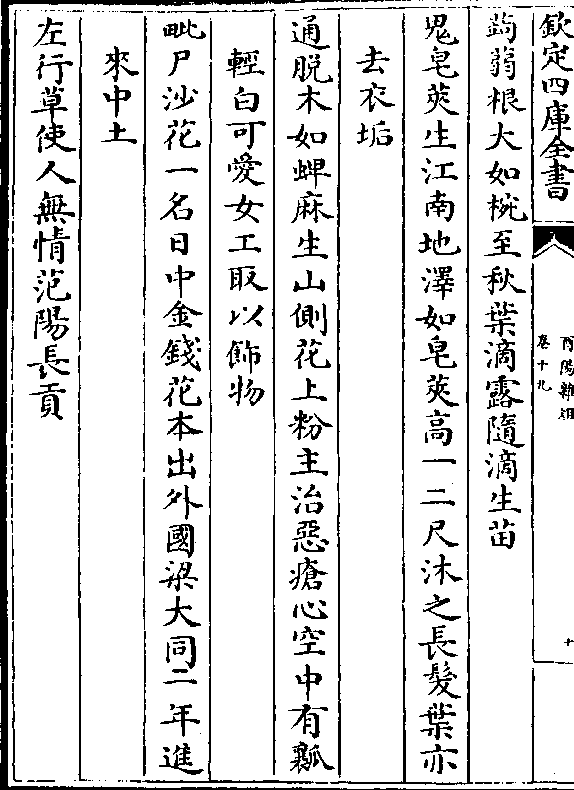 欽定四庫全書
酉陽雜俎
卷十九
十
蒟蒻根大如椀至秋葉滴露隨滴生苗
鬼皂莢生江南地澤如皂莢高一二尺沐之長髮葉亦
去衣垢
通脱木如蜱麻生山側花上粉主治惡瘡心空中有瓤
輕白可愛女工取以飾物
毗尸沙花一名日中金錢花本出外國梁大同二年進
來中土
左行草使人無情范陽長貢